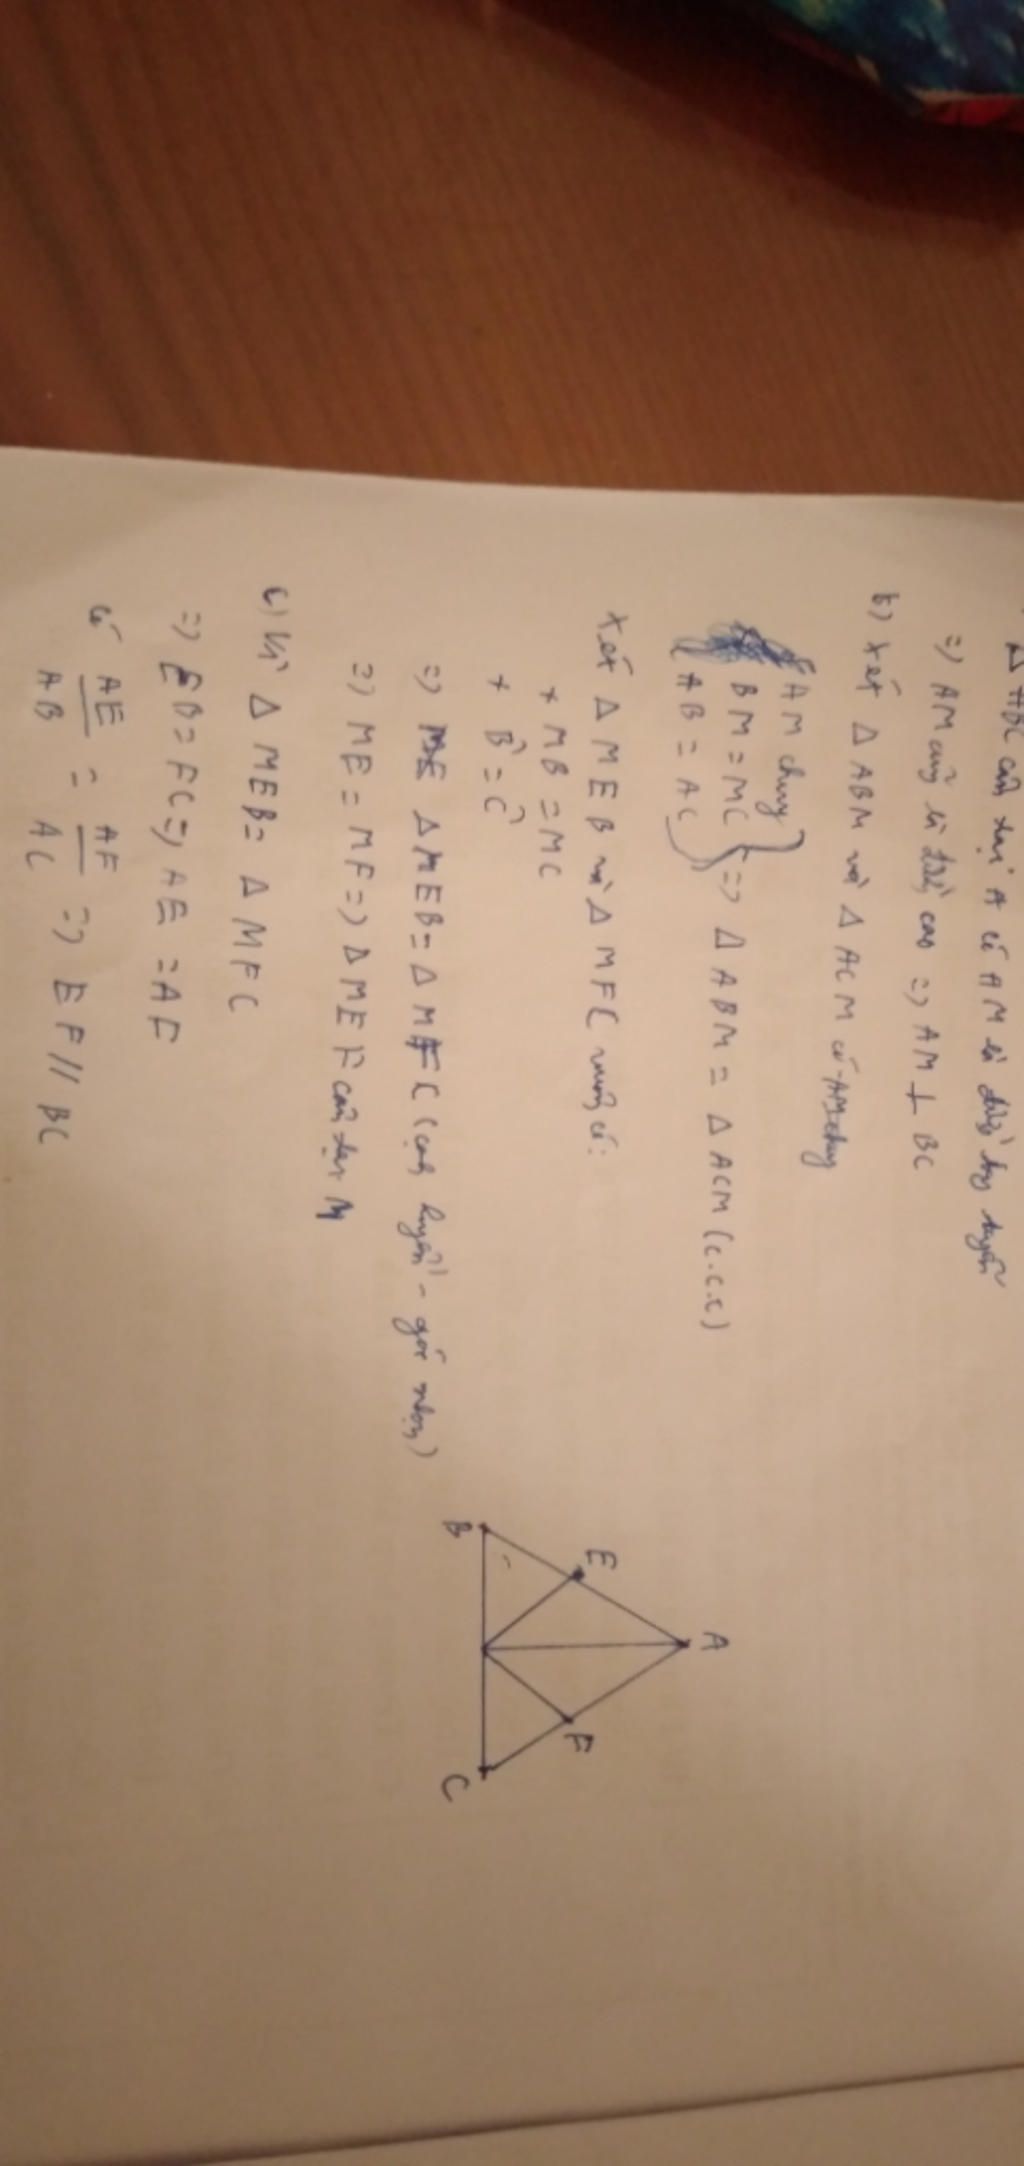 Δ ABC cân tại A có AM là đường trung tuyến
=> AM cũng là đường cao => AM ⊥ BC
b) Xét Δ ABM và Δ ACM có AM chung
AM chung
BM = MC => Δ ABM = Δ ACM (c.c.c)
AB = AC
Xét Δ MEB và Δ MFC vuông có:
+ MB = MC
+ B̂ = Ĉ
=> Δ MEB = Δ MFC (cạnh huyền - góc nhọn)
=> ME = MF => Δ MEF cân tại M
c) Vì Δ MEB = Δ MFC
=> EB = FC => AE = AF
có AE/AB = AF/AC => EF // BC
A
E
F
B
C